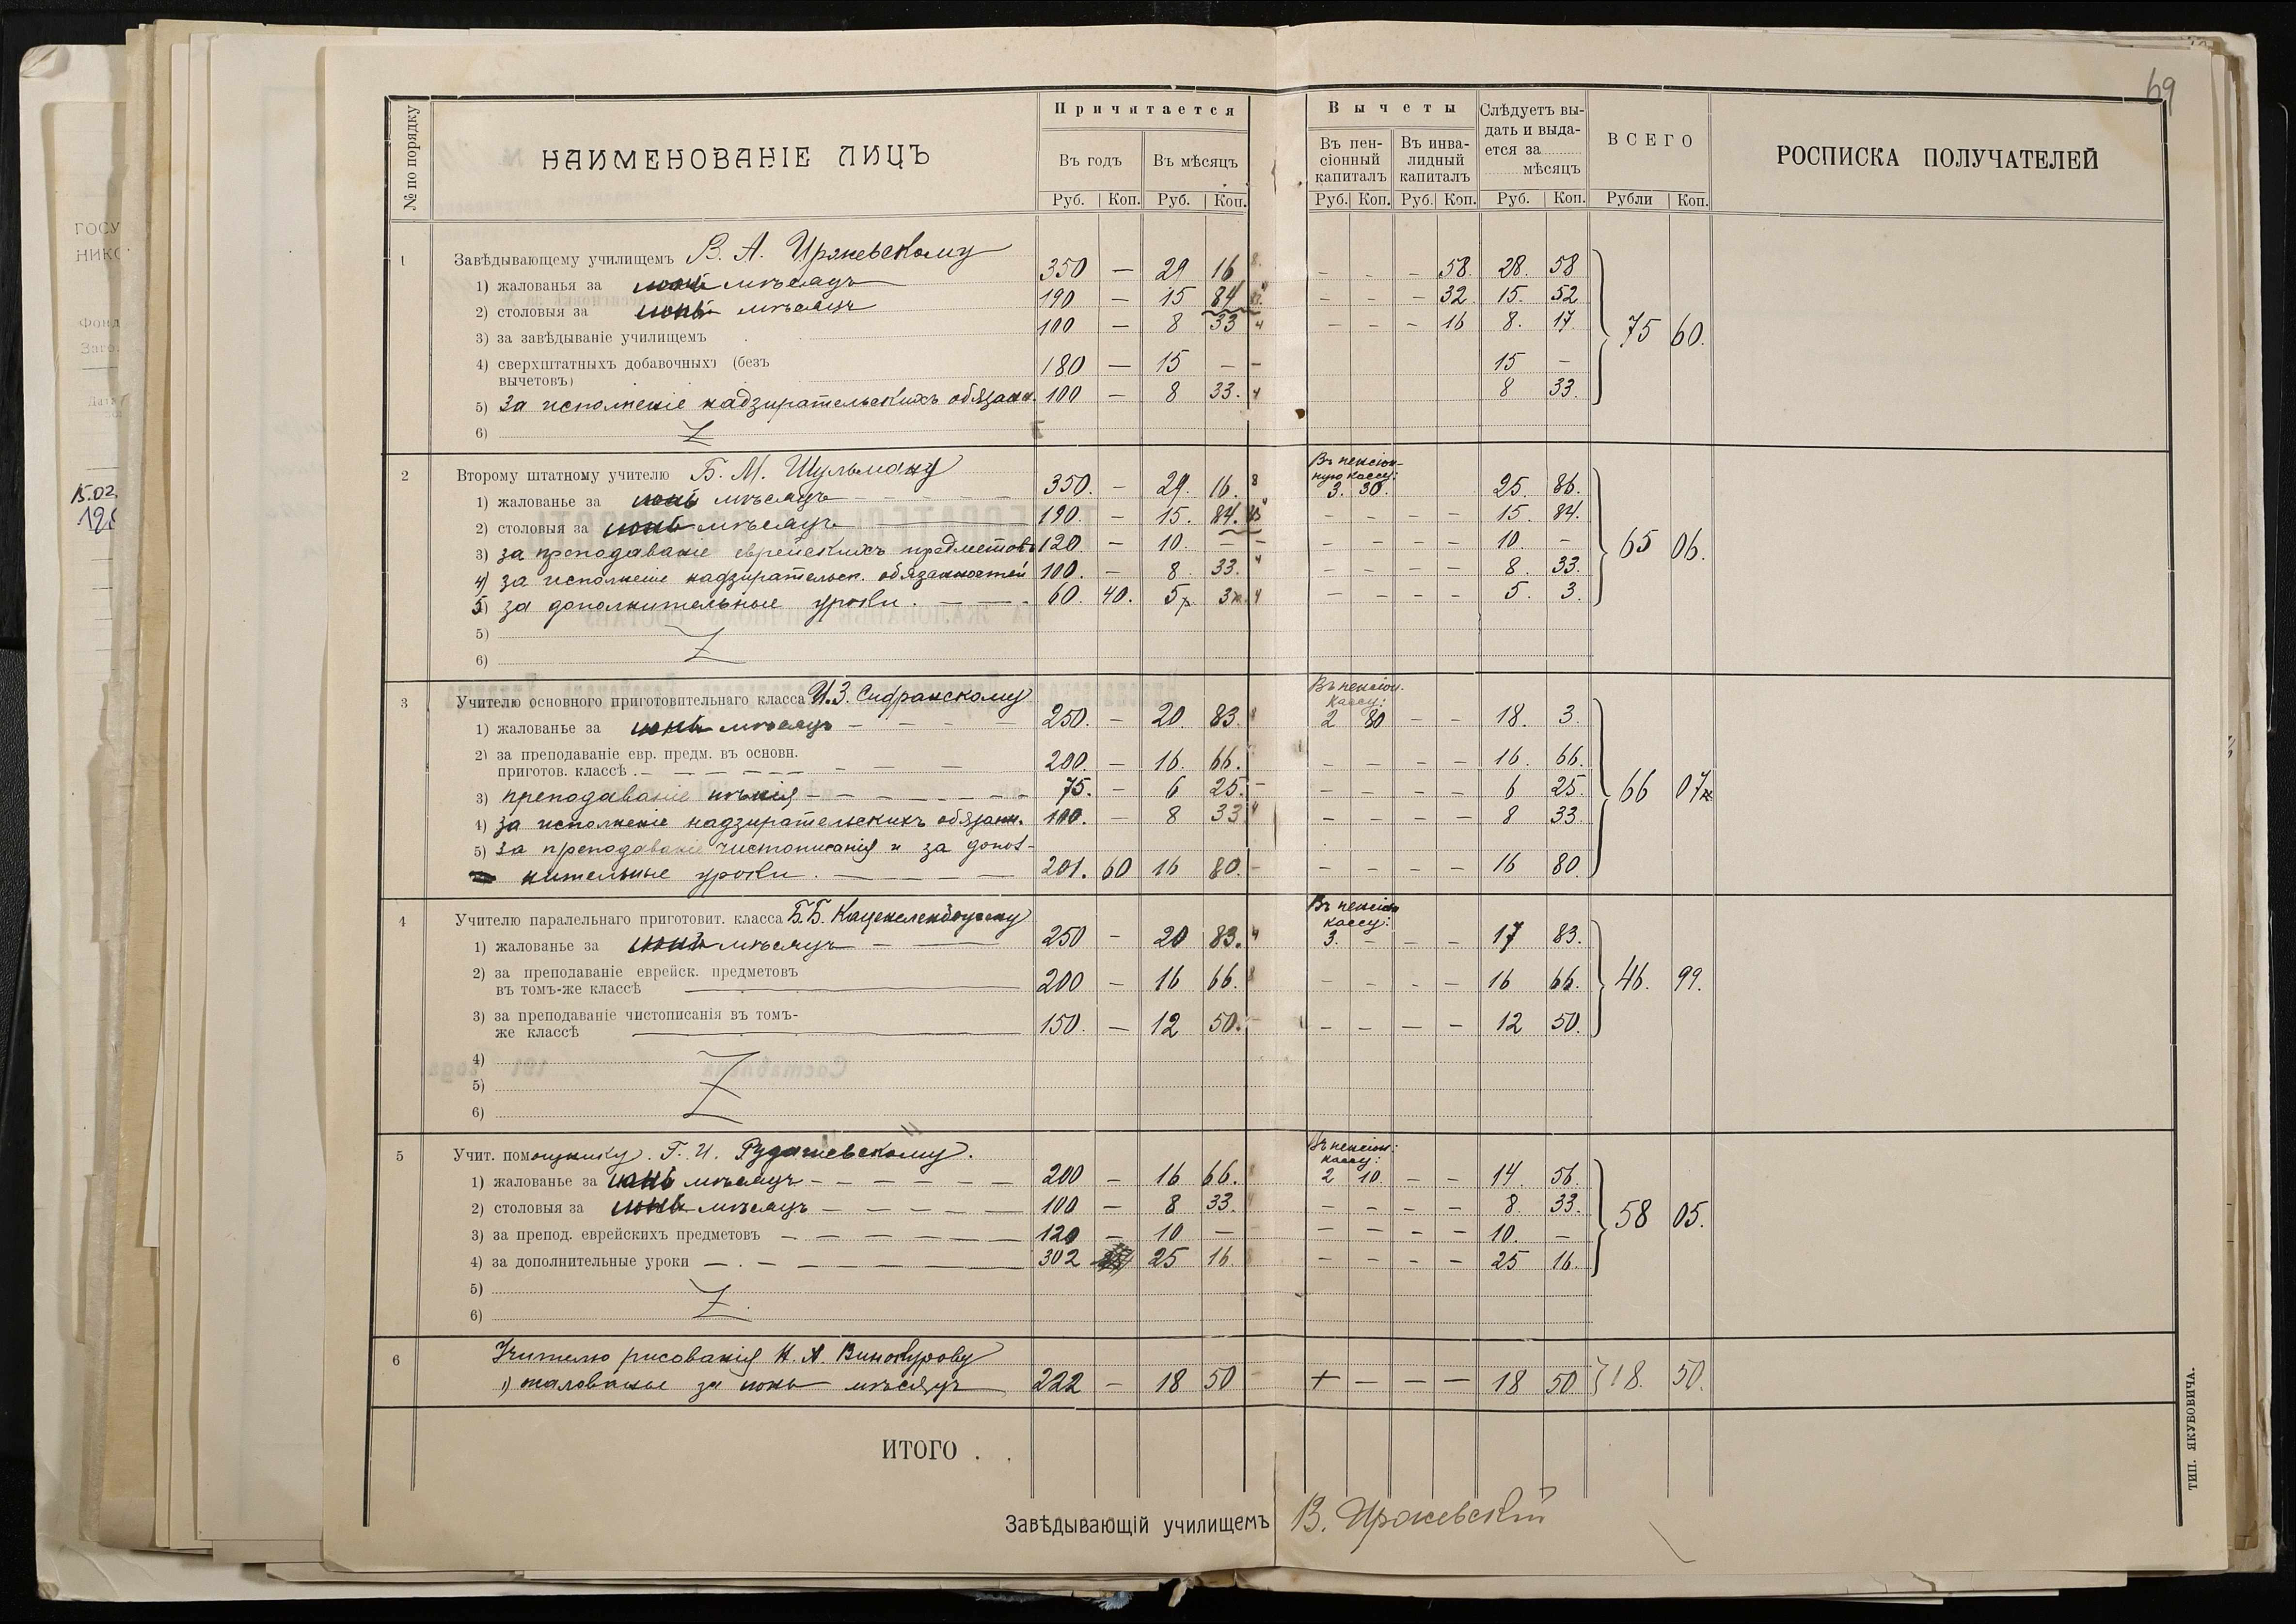 69
№ по порядку
НАИМЕНОВАНІЕ ЛИЦЪ
Причитается
Въ годъ
Въ мѣсяцъ
Руб. Коп. Руб. Коп.
Вычеты
Въ пен-
сіонный
капиталъ
Въ инва-
лидный
капиталъ
Слѣдуетъ вы-
дать и выда-
ется за
мѣсяцъ
ВСЕГО
РОСПИСКА ПОЛУЧАТЕЛЕЙ
Руб. Коп. Руб. Коп. Руб. Коп. Рубли Коп.
1 Завѣдывающему училищемъ В. А. Иржевскому
1) жалованья за іюнь мѣсяцъ 350 — 29 16 8 - - - 58. 28. 58
2) столовыя за іюнь мѣсяцъ 190 — 15 84 - - - 32 15. 52
3) за завѣдываніе училищемъ 100 — 8 33 4 - - - 16 8. 17.
75 60.
4) сверхштатныхъ добавочныхъ (безъ
вычетовъ) 180 — 15 — — 15 —
5) За исполненіе надзирательскихъ обязанн. 100 — 8 33. 4 8 33.
6)
2 Второму штатному учителю Б. М. Шульману
Въ пенсіон-
ную кассу:
1) жалованье за іюнь мѣсяцъ 350. - 29. 16. 8 3. 30. 25. 86.
2) столовыя за іюнь мѣсяцъ 190. - 15. 84. - - - - 15. 84.
3) за преподаваніе еврейскихъ предметовъ 120. - 10. — — - - - - 10. -
65 06.
4) за исполненіе надзирательск. обязанностей 100. - 8. 33. 4 - - - - 8. 33.
5) за дополнительные уроки. 60. 40. 5 3 4 - - - - 5. 3.
5)
6)
3 Учителю основного приготовительнаго класса И. З. Сифранскому
Въ пенсіон.
кассу:
1) жалованье за іюнь мѣсяцъ 250. - 20. 83. 2 80 - - 18. 3.
2) за преподаваніе евр. предм. въ основн.
приготов. классѣ 200. - 16. 66. - - - - 16. 66.
3) преподаваніе пѣнія 75. - 6 25. - - - - - 6 25.
66 07
4) за исполненіе надзирательскихъ обязанн. 100. - 8 33 4 - - - - 8 33.
5) За преподаваніе чистописанія и за допол-
нительные уроки. 201. 60 16 80. - - - - - 16 80.
4 Учителю паралельнаго приготовит. класса Б. Б.
Въ пенсіон
кассу:
1) жалованье за іюнь мѣсяцъ 250 - 20 83. 4 3. - - - 17 83.
2) за преподаваніе еврейск. предметовъ
въ томъ-же классѣ 200 - 16 66. 8 - - - - 16 66.
46. 99.
3) за преподаваніе чистописанія въ томъ-
же классѣ 150. - 12 50. - - - - 12 50.
4)
5)
6)
5 Учит. помощнику. Г. И. Рудашевскому.
Въ пенсіон:
кассу:
1) жалованье за іюнь мѣсяцъ 200 - 16 66. 2 10. - - 14. 56.
2) столовыя за іюнь мѣсяцъ 100 - 8 33. - - - - 8. 33.
58 05.
3) за препод. еврейскихъ предметовъ 120 - 10 — - - - - 10. —
4) за дополнительные уроки 302 25 16. - - - - 25 16.
5)
6)
6 Учителю рисованія Н. А. Винокурову
1) жалованье за іюнь мѣсяцъ 222 - 18 50 + - - - 18 50 18. 50.
ИТОГО . .
Завѣдывающій училищемъ В. Иржевскій
ТИП. ЯКУБОВИЧА.
ГОСУ
НИКО
Фонд
Заго.
Дата
15.02.